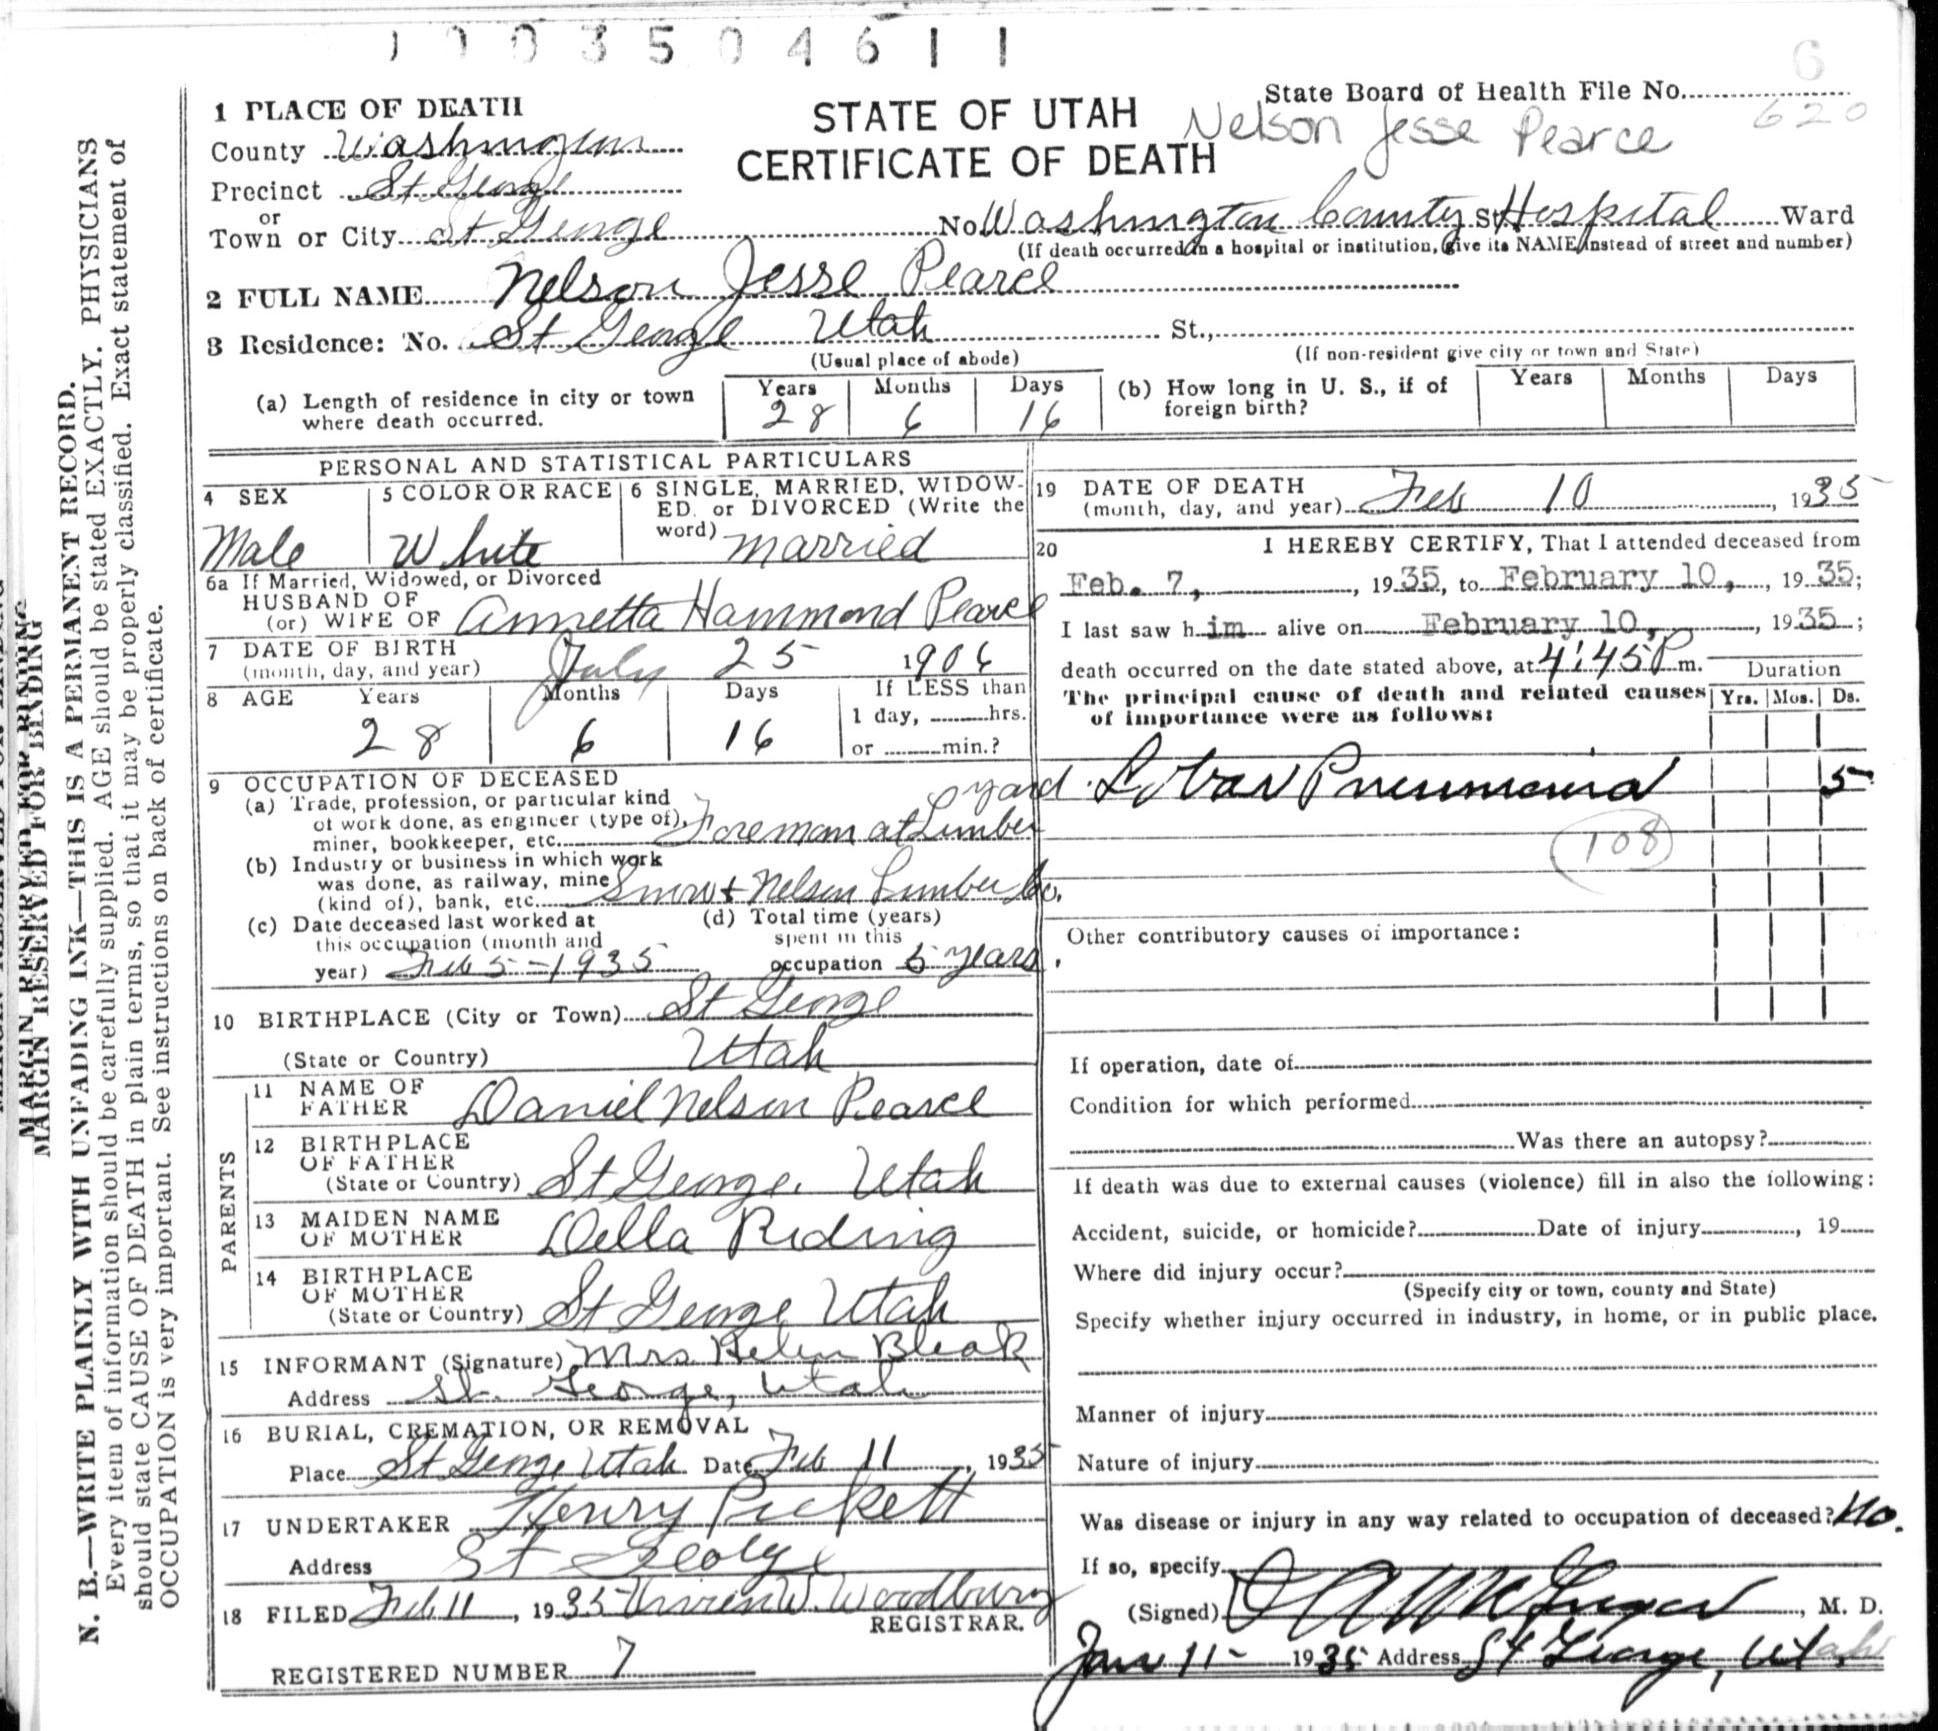 1 0 0 3 5 0 4 6 1 1
6
State Board of Health File No.
620
1 PLACE OF DEATH
STATE OF UTAH
Nelson Jesse Pearce
County Washington
CERTIFICATE OF DEATH
Precinct St George
or
Town or City St George No. Washington County St. Hospital Ward
(If death occurred in a hospital or institution, give its NAME instead of street and number)
2 FULL NAME Nelson Jesse Pearce
3 Residence: No. St George Utah St.,
(Usual place of abode) (If non-resident give city or town and State)
(a) Length of residence in city or town where death occurred. Years 28 Months 6 Days 16
(b) How long in U. S., if of foreign birth? Years Months Days
PERSONAL AND STATISTICAL PARTICULARS
4 SEX Male
5 COLOR OR RACE White
6 SINGLE, MARRIED, WIDOW-
ED. or DIVORCED (Write the
word) married
6a If Married, Widowed, or Divorced
HUSBAND OF
(or) WIFE OF Annetta Hammond Pearce
7 DATE OF BIRTH
(month, day, and year) July 25 1906
8 AGE Years 28 Months 6 Days 16
If LESS than
1 day, hrs.
or min.?
9 OCCUPATION OF DECEASED
(a) Trade, profession, or particular kind
of work done, as engineer (type of),
miner, bookkeeper, etc. Foreman at Lumber yard
(b) Industry or business in which work
was done, as railway, mine
(kind of), bank, etc. Snow & Nelson Lumber Co.
(c) Date deceased last worked at
this occupation (month and
year) Feb 5 - 1935
(d) Total time (years)
spent in this
occupation 5 years.
10 BIRTHPLACE (City or Town) St George
(State or Country) Utah
PARENTS
11 NAME OF
FATHER Daniel Nelson Pearce
12 BIRTHPLACE
OF FATHER
(State or Country) St George. Utah
13 MAIDEN NAME
OF MOTHER Della Riding
14 BIRTHPLACE
OF MOTHER
(State or Country) St George Utah
15 INFORMANT (Signature) Mrs Helen Bleak
Address St. George, Utah
16 BURIAL, CREMATION, OR REMOVAL
Place St George Utah Date Feb 11, 1935
17 UNDERTAKER Henry Pickett
Address St George
18 FILED Feb 11, 1935 Vivien W. Woodbury
REGISTRAR.
REGISTERED NUMBER 7
19 DATE OF DEATH
(month, day, and year) Feb 10, 1935
20 I HEREBY CERTIFY, That I attended deceased from
Feb. 7, 1935, to February 10, 1935;
I last saw him alive on February 10, 1935;
death occurred on the date stated above, at 4:45 P m.
Duration
The principal cause of death and related causes
of importance were as follows:
Yrs. Mos. Ds.
Lobar Pneumonia 5
108
Other contributory causes of importance:
If operation, date of
Condition for which performed
Was there an autopsy?
If death was due to external causes (violence) fill in also the following:
Accident, suicide, or homicide? Date of injury, 19
Where did injury occur?
(Specify city or town, county and State)
Specify whether injury occurred in industry, in home, or in public place.
Manner of injury
Nature of injury
Was disease or injury in any way related to occupation of deceased? No.
If so, specify
(Signed) , M. D.
Jan 11 - 1935 Address St George, Utah
MARGIN RESERVED FOR BINDING
N. B.—WRITE PLAINLY WITH UNFADING INK—THIS IS A PERMANENT RECORD.
Every item of information should be carefully supplied. AGE should be stated EXACTLY. PHYSICIANS
should state CAUSE OF DEATH in plain terms, so that it may be properly classified. Exact statement of
OCCUPATION is very important. See instructions on back of certificate.